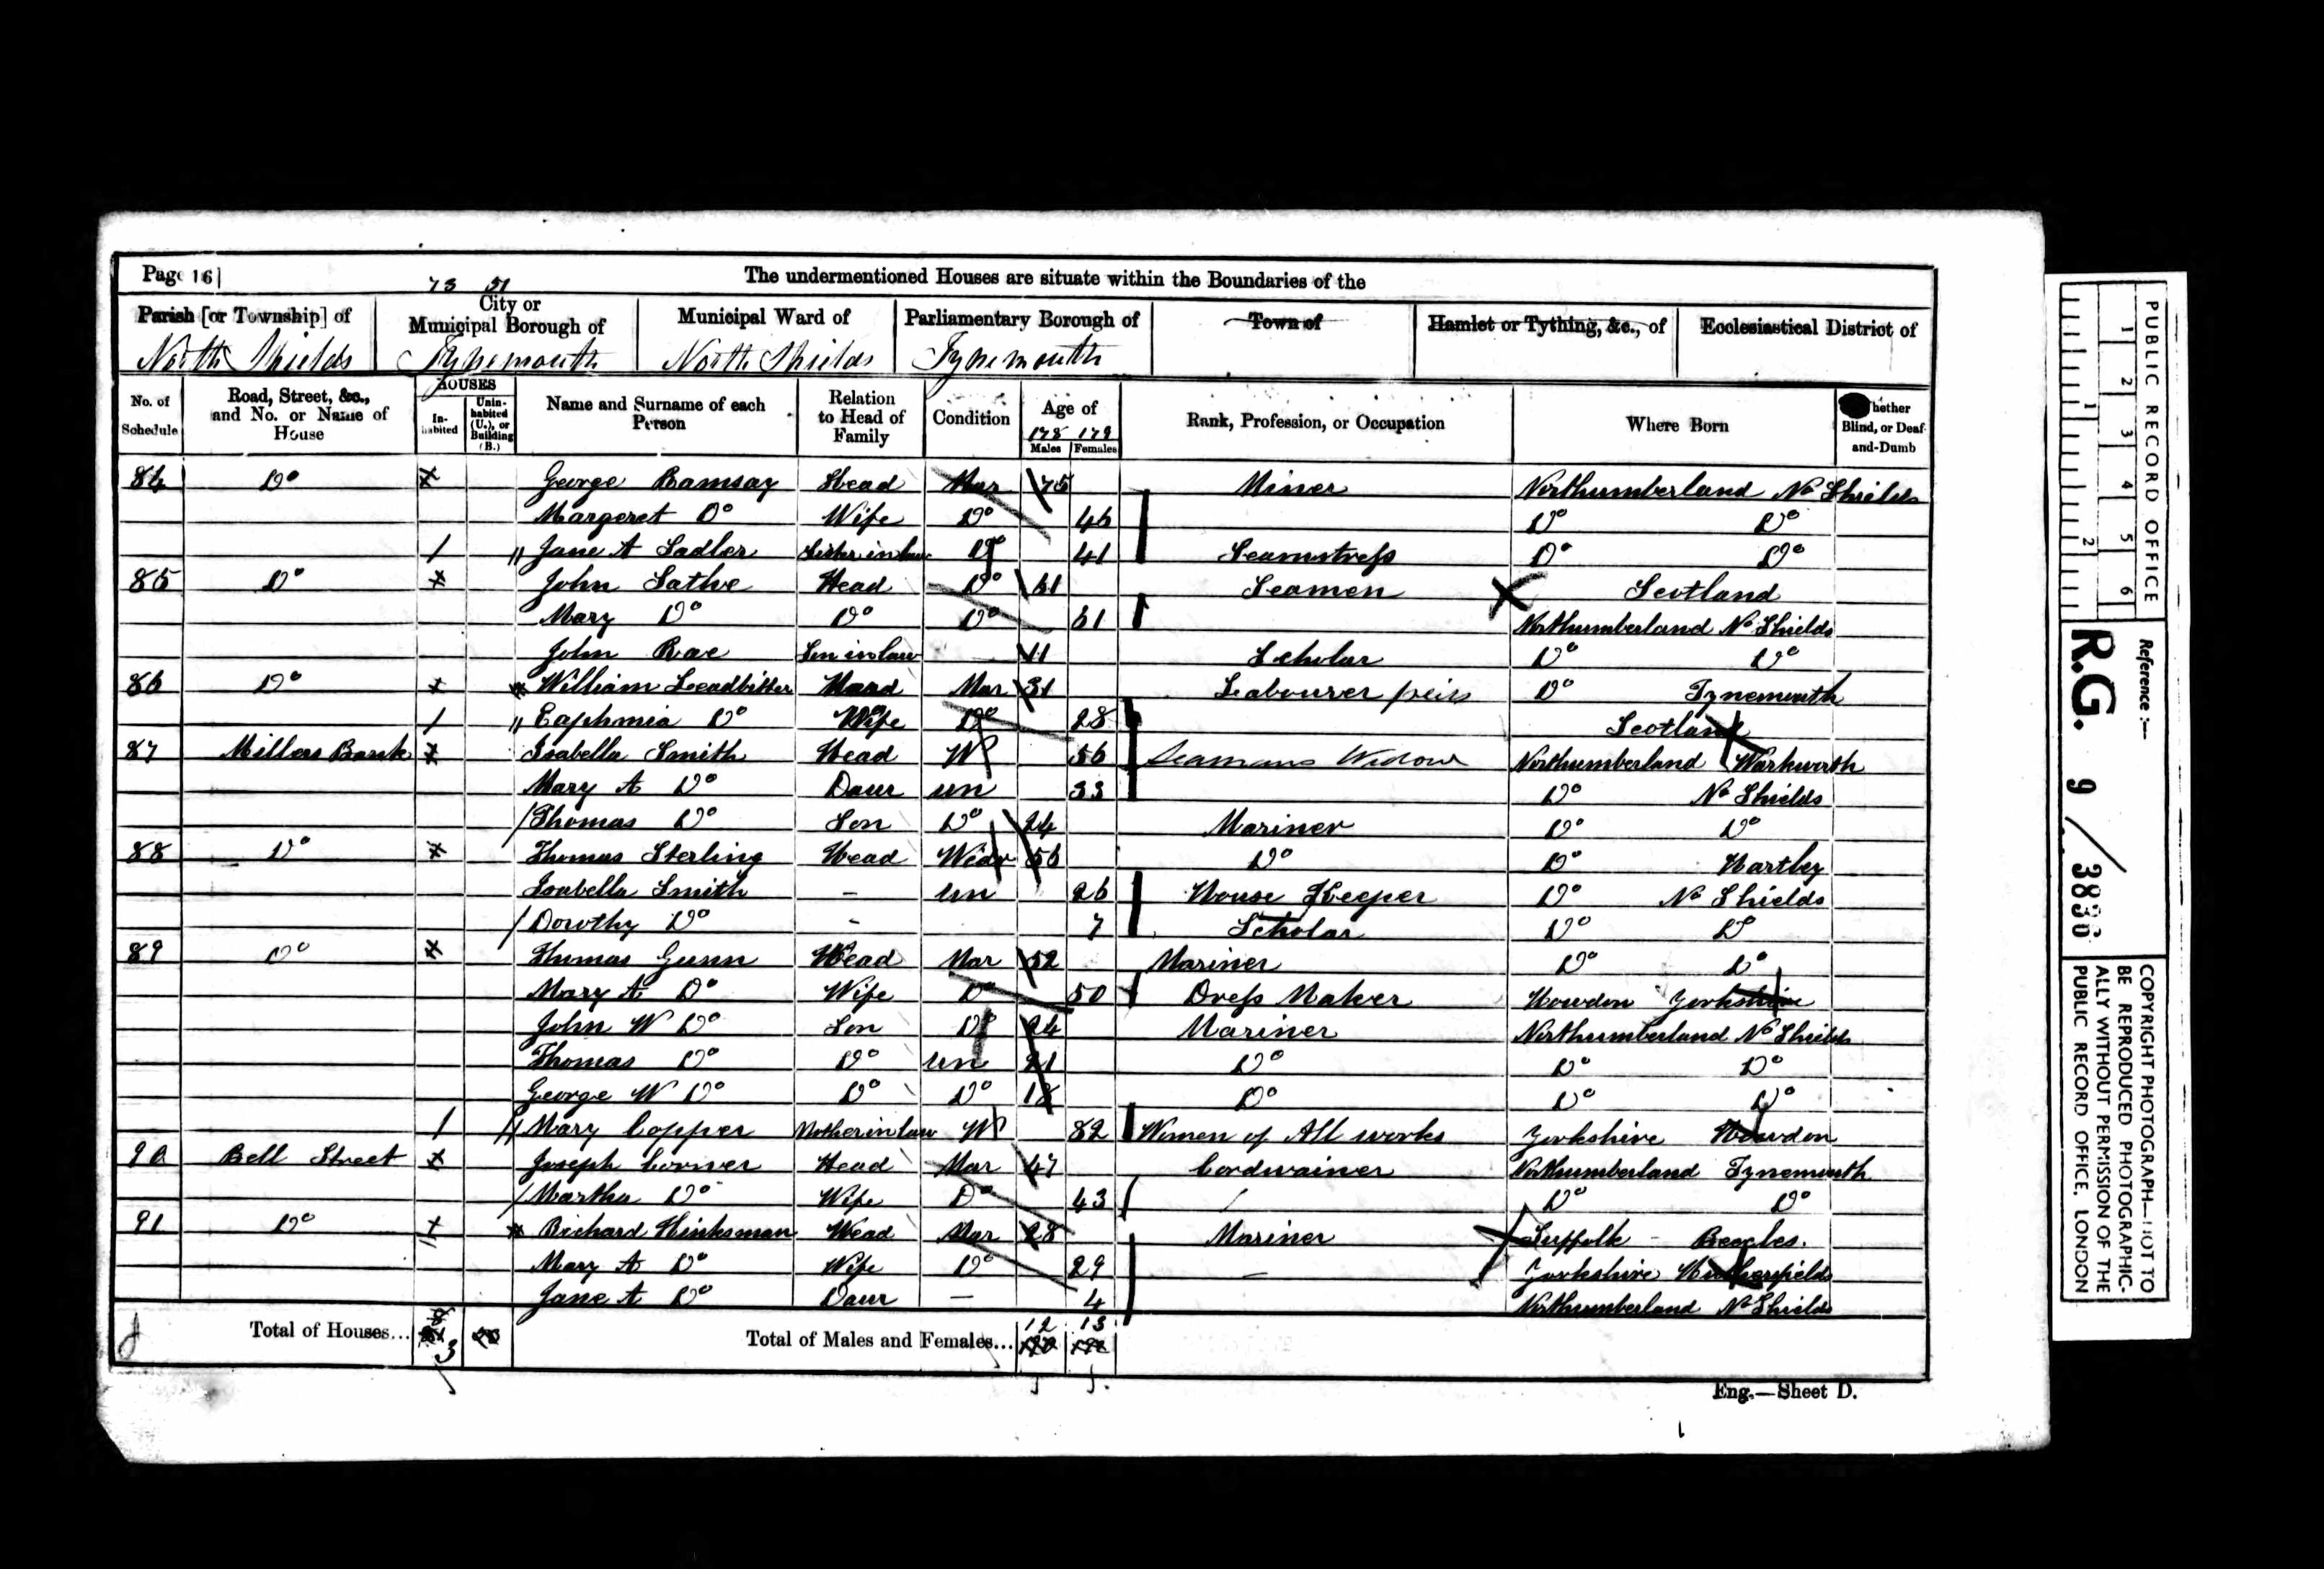 Page 16
The undermentioned Houses are situate within the Boundaries of the
Parish [or Township] of City or Municipal Borough of Municipal Ward of Parliamentary Borough of Town of Hamlet or Tything, &c., of Ecclesiastical District of
North Shields Tynemouth North Shields Tynemouth
No. of Schedule Road, Street, &c., and No. or Name of House HOUSES In-habited Unin-habited (U.), or Building (B.) Name and Surname of each Person Relation to Head of Family Condition Age of Males Females Rank, Profession, or Occupation Where Born Whether Blind, or Deaf-and-Dumb
178 179
84 Do George Ramsay Head Mar 75 Miner Northumberland No Shields
Margeret Do Wife Do 46 Do Do
Jane A Sadler Sister in law Do 41 Seamstress Do Do
85 Do John Head Do 61 Seamen Scotland
Mary Do Do Do 61 Northumberland No Shields
John Rae Son in law 11 Scholar Do Do
86 Do William Leadbitter Head Mar 31 Labourer Do Tynemouth
Eaphmia Do Wife Do 28 Scotland
87 Millers Bank Isabella Smith Head W 56 Seamans Widow Northumberland Warkworth
Mary A Do Daur un 33 Do No Shields
Thomas Do Son Do 24 Mariner Do Do
88 Do Thomas Sterling Head Widr 56 Do Do Hartley
Isabella Smith - un 26 House Keeper Do No Shields
Dorothy Do - 7 Scholar Do Do
89 Do Thomas Gunn Head Mar 52 Mariner Do Do
Mary A Do Wife Do 50 Dress Maker Howdon Yorkshire
John W Do Son Do 24 Mariner Northumberland No Shields
Thomas Do Do un 21 Do Do Do
George W Do Do Do 18 Do Do Do
Mary Copper Mother in law W 82 Women of All works Yorkshire Howdon
90 Bell Street Joseph Corner Head Mar 47 Cordwainer Northumberland Tynemouth
Martha Do Wife Do 43 Do Do
91 Do Richard Hinksman Head Mar 28 Mariner Suffolk - Beccles.
Mary A Do Wife Do 29 - Yorkshire
Jane A Do Daur - 4 Northumberland No Shields
Total of Houses... 3 Total of Males and Females... 12 13
Eng.—Sheet D.
PUBLIC RECORD OFFICE
1 2 3 4 5 6
1 2
Reference :—
R.G. 9 / 3836
COPYRIGHT PHOTOGRAPH—NOT TO
BE REPRODUCED PHOTOGRAPHIC-
ALLY WITHOUT PERMISSION OF THE
PUBLIC RECORD OFFICE, LONDON